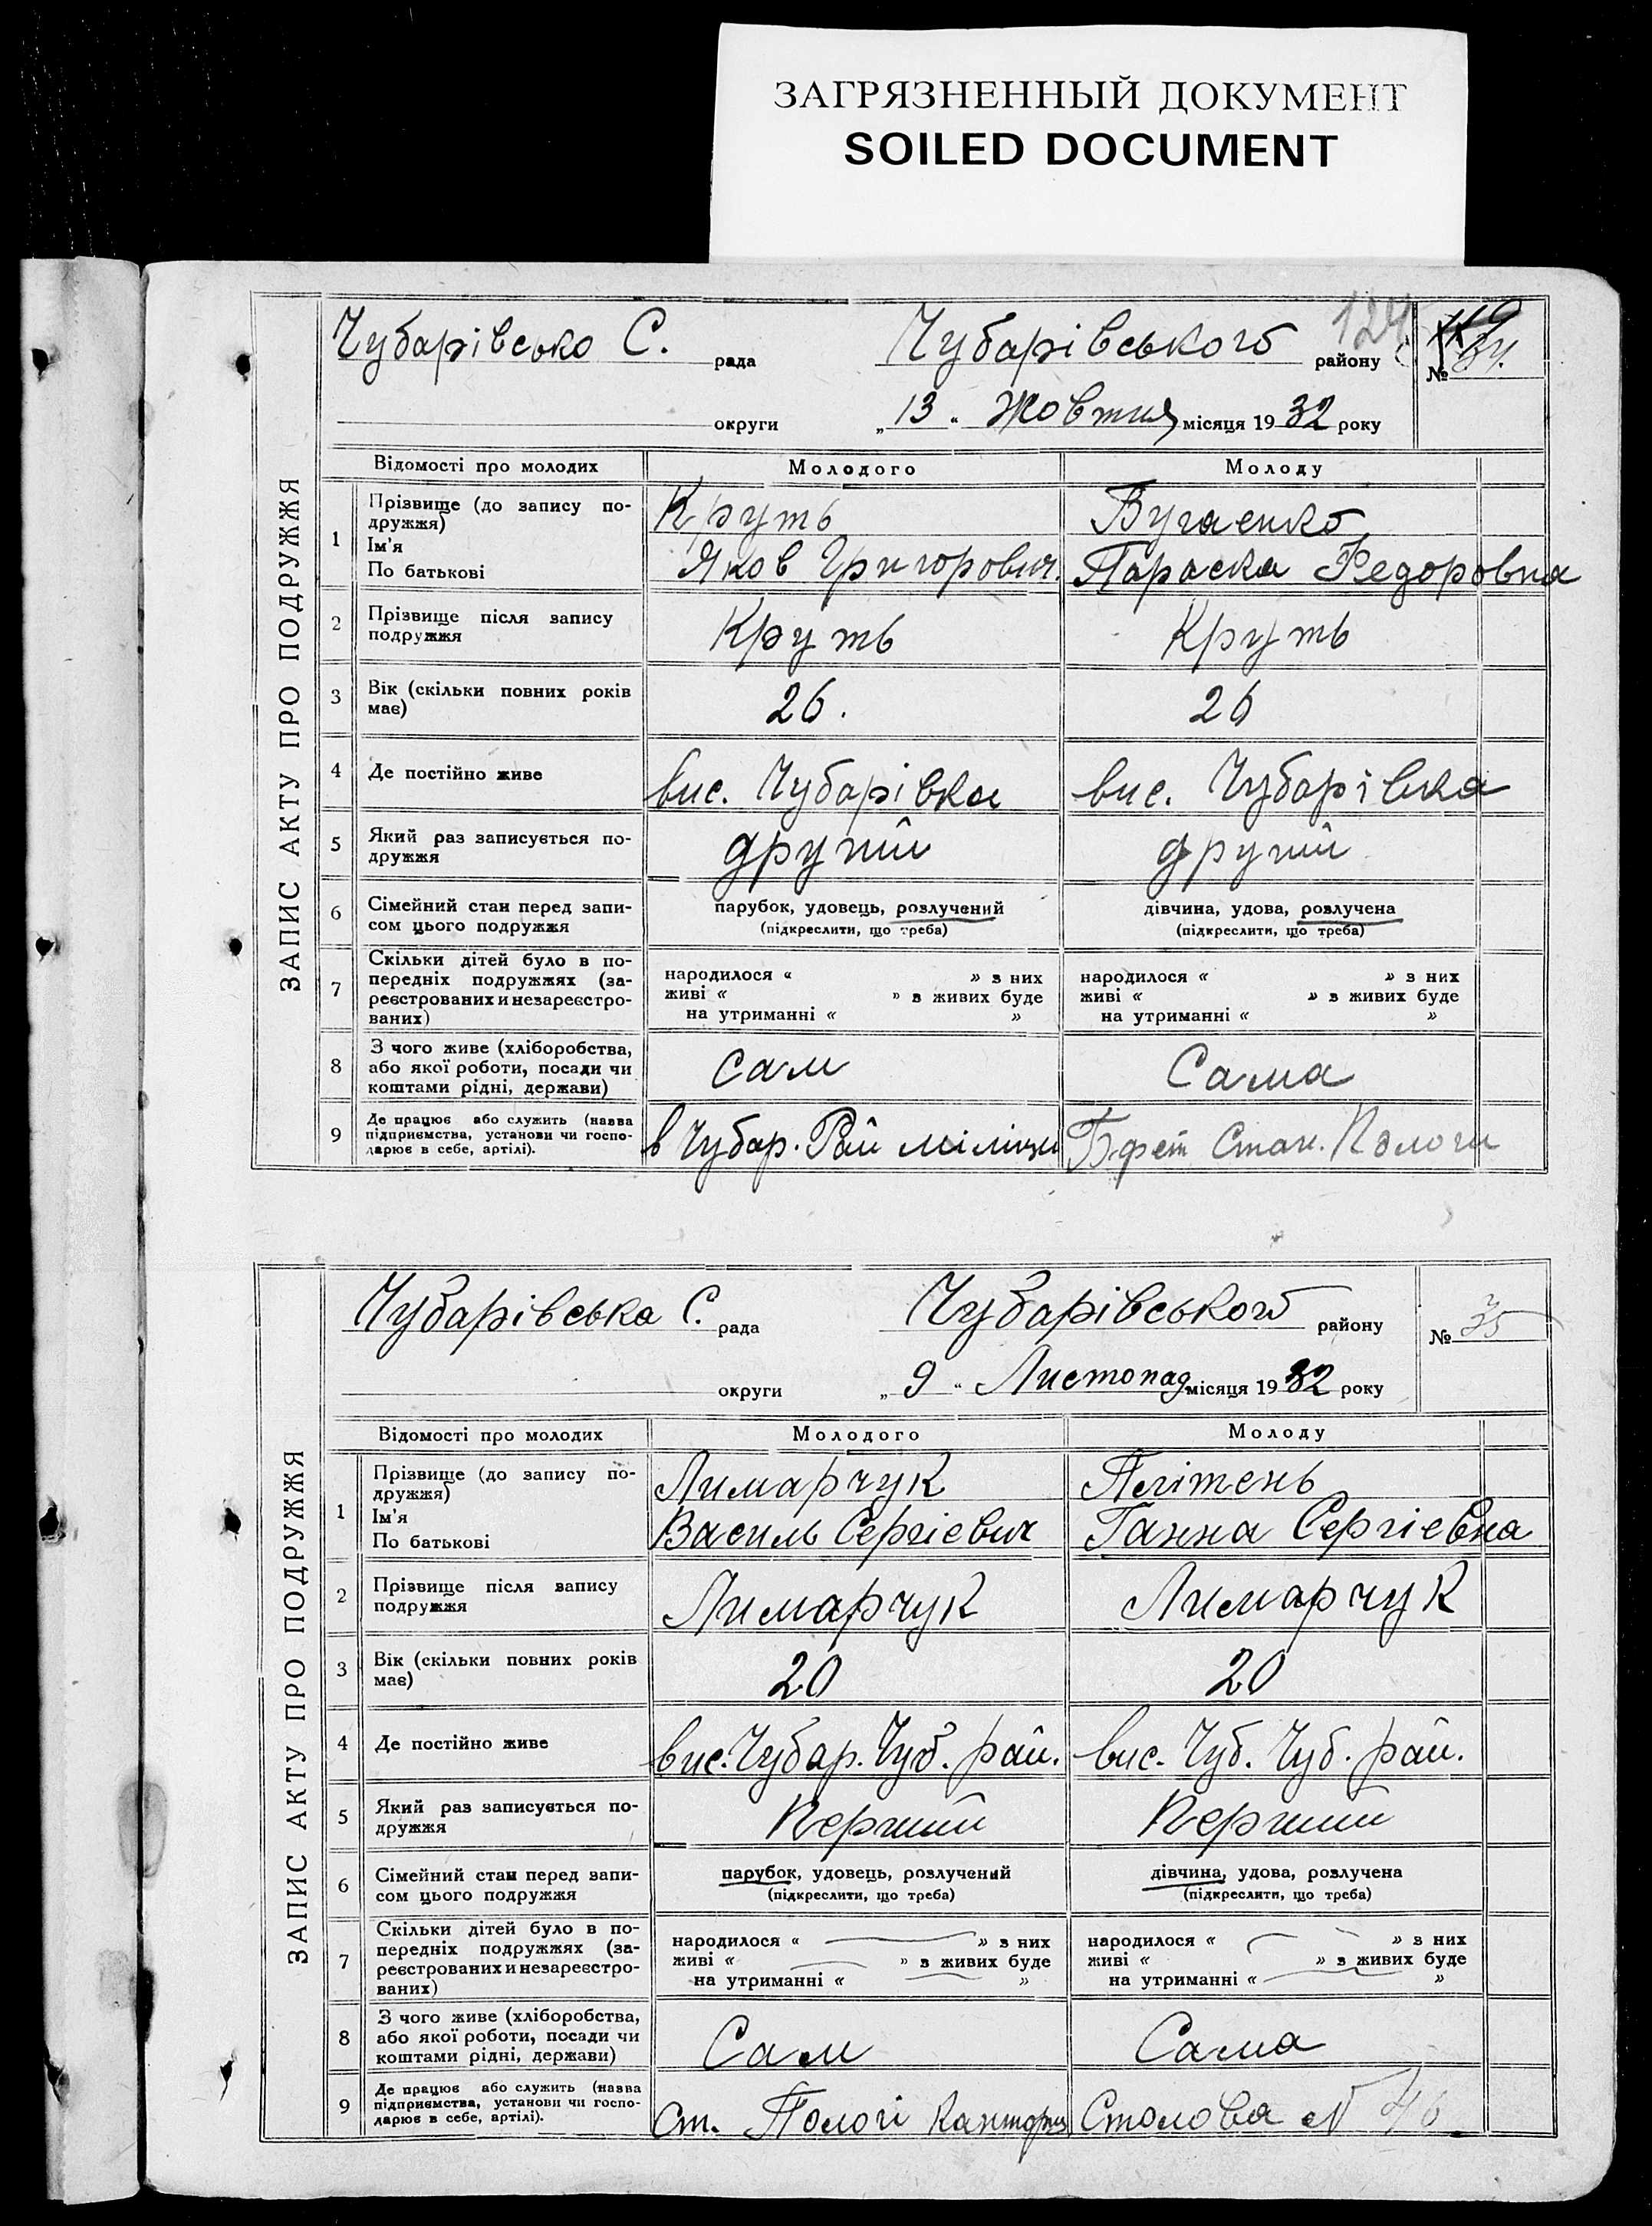 ЗАГРЯЗНЕННЫЙ ДОКУМЕНТ
SOILED DOCUMENT
ЗАПИС АКТУ ПРО ПОДРУЖЖЯ
Чубарівсько С. рада Чубарівського району 124 № 34.
округи „13“ Жовтня місяця 1932 року
Відомості про молодих Молодого Молоду
1 Прізвище (до запису по-
дружжя) Круть
Ім'я
По батькові Яков Григорович. Параска Федоровна
2 Прізвище після запису
подружжя Круть Круть
3 Вік (скільки повних років
має) 26. 26
4 Де постійно живе вис. Чубарівка вис. Чубарівка
5 Який раз записується по-
дружжя другий другий
6 Сімейний стан перед запи-
сом цього подружжя парубок, удовець, розлучений дівчина, удова, розлучена
(підкреслити, що треба) (підкреслити, що треба)
7 Скільки дітей було в по-
передніх подружжях (за-
реєстрованих и незареєстро-
ваних)
народилося « » з них народилося « » з них
живі « » в живих буде живі « » в живих буде
на утриманні « » на утриманні « »
8 З чого живе (хліборобства,
або якої роботи, посади чи
коштами рідні, держави) сам Сама
9 Де працює або служить (назва
підприємства, установи чи госпо-
дарює в себе, артілі). в Чубар. Рай міліции Стан. Пологи
ЗАПИС АКТУ ПРО ПОДРУЖЖЯ
Чубарівська С. рада Чубарівського району № 35
округи „9“ Листопад місяця 1932 року
Відомості про молодих Молодого Молоду
1 Прізвище (до запису по-
дружжя) Лимарчук Плітень
Ім'я
По батькові Василь Сергієвич Ганна Сергієвна
2 Прізвище після запису
подружжя Лимарчук Лимарчук
3 Вік (скільки повних років
має) 20 20
4 Де постійно живе вис. Чубар. Чуб. рай. вис. Чуб. Чуб. рай.
5 Який раз записується по-
дружжя Перший Перший
6 Сімейний стан перед запи-
сом цього подружжя парубок, удовець, розлучений дівчина, удова, розлучена
(підкреслити, що треба) (підкреслити, що треба)
7 Скільки дітей було в по-
передніх подружжях (за-
реєстрованих и незареєстро-
ваних)
народилося « » з них народилося « » з них
живі « » в живих буде живі « » в живих буде
на утриманні « » на утриманні « »
8 З чого живе (хліборобства,
або якої роботи, посади чи
коштами рідні, держави) Сам Сама
9 Де працює або служить (назва
підприємства, установи чи госпо-
дарює в себе, артілі). Ст. Пологи Столова №